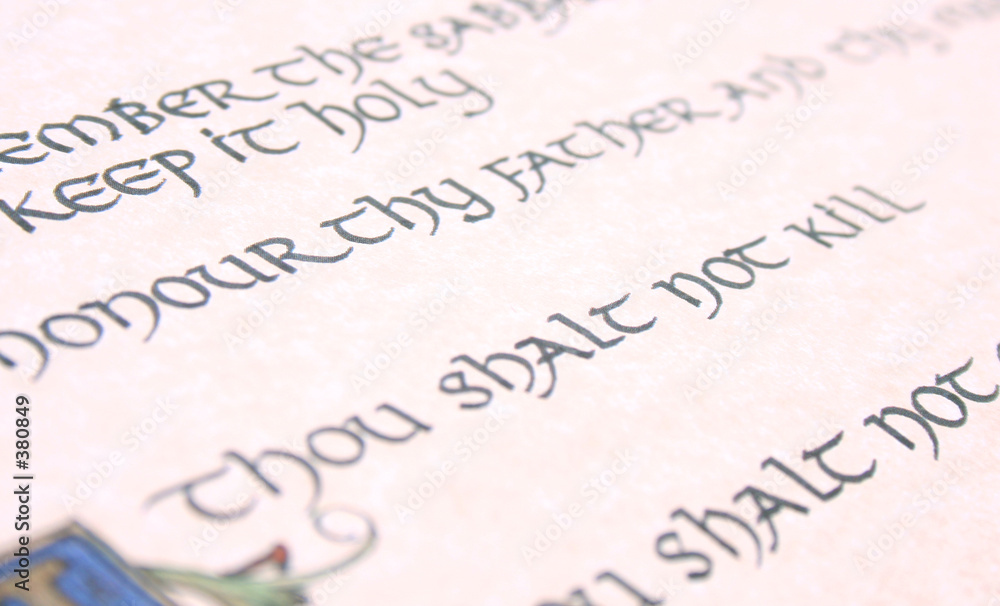 EMBER THE SABBA
KEEP IT HOLY
HONOUR THY FATHER AND THY
THOU SHALT NOT KILL
U SHALT NOT
Adobe Stock | #380849